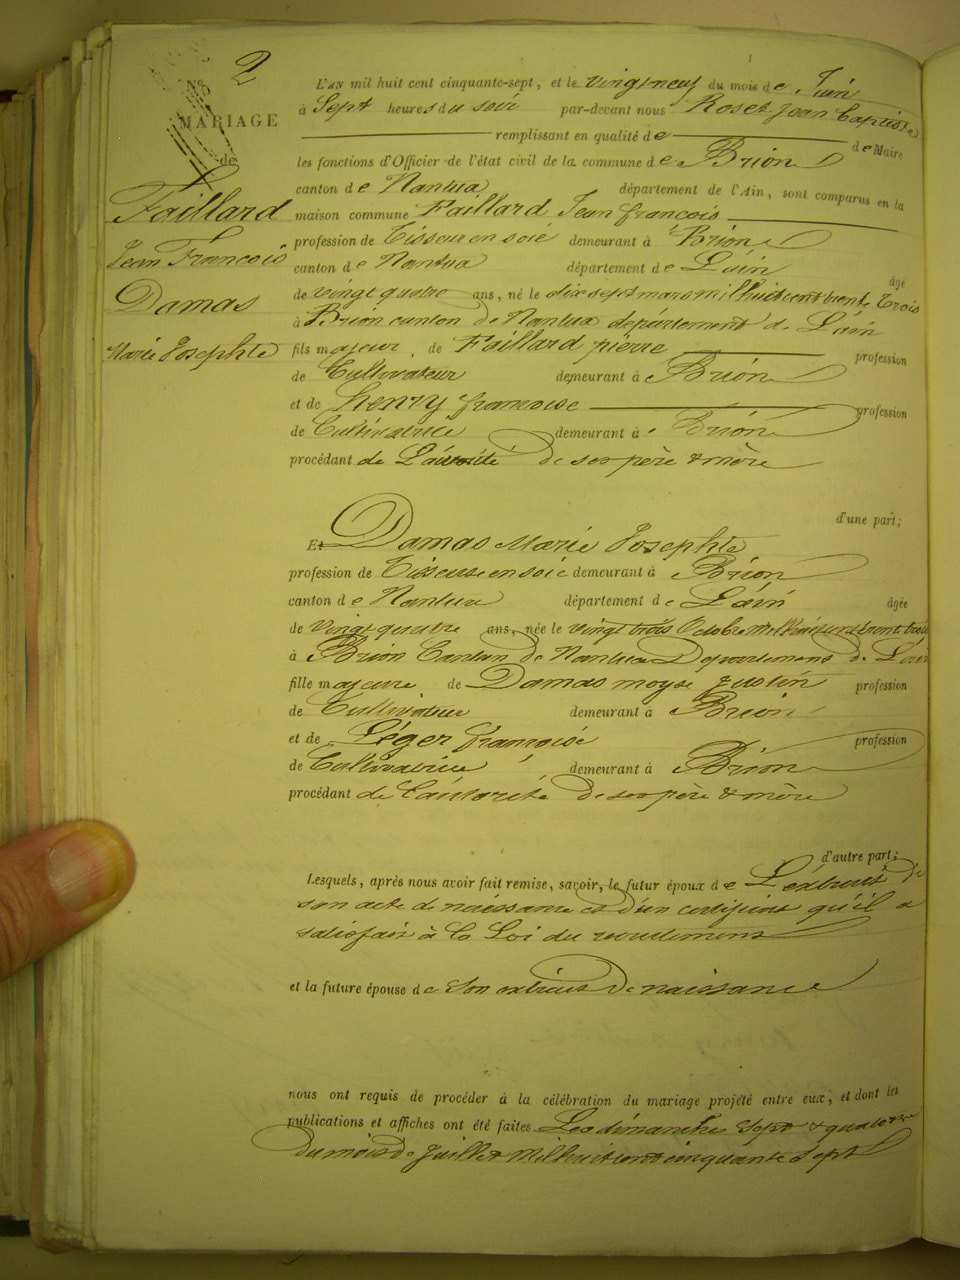 No 2
MARIAGE
de
Faillard
Jean François
Damas
Marie Josephte
L'AN mil huit cent cinquante-sept, et le vingt neuf du mois de Juin
à Sept heures du soir par-devant nous Roset Jean Baptiste
remplissant en qualité de de Maire
les fonctions d'Officier de l'état civil de la commune de Brion
canton de Nantua département de l'Ain, sont comparus en la
maison commune Faillard Jean françois
profession de Tisseur en soie demeurant à Brion
canton de Nantua département de L'ain âgé
de vingt quatre ans, né le dix sept mars mil huit cent trente trois
à Brion canton de Nantua département de L'ain
fils majeur de Faillard pierre profession
de Cultivateur demeurant à Brion
et de henry françoise profession
de Cultivatrice demeurant à Brion
procédant de L'autorité de ses père & mère
d'une part;
Et Damas Marie Josephte
profession de Tisseuse en soie demeurant à Brion
canton de Nantua département de L'ain âgée
de vingt quatre ans, née le vingt trois Octobre mil huit cent trente trois
à Brion Canton de Nantua Département de L'ain
fille majeure de Damas moyse justin profession
de Cultivateur demeurant à Brion
et de Léger françoise profession
de Cultivatrice demeurant à Brion
procédant de L'autorité de ses père & mère
d'autre part;
Lesquels, après nous avoir fait remise, savoir, le futur époux de L'extrait de
son acte de naissance et d'un certificat qu'il a
satisfait à la Loi du recrutement
et la future épouse de Son extrait De naissance
nous ont requis de procéder à la célébration du mariage projeté entre eux, et dont les
publications et affiches ont été faites Les dimanches Sept & quatorze
du mois de Juillet Mil huit cent cinquante Sept